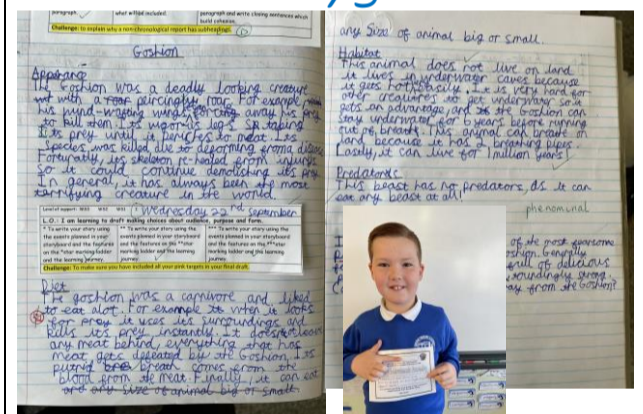 paragraph.
what willed included.
paragraph and write closing sentences which
build cohesion.
Challenge: to explain why a non-chronological report has subheadings.
Goshion
Apperance
The Goshion was a deadly looking creature
with a roar peircingly roar. For example,
his wind-wasting wings, forcing away his prey
its prey until it munches the meat. Its
species was killed due to deforming from a disease
Fortunatly, its skeleton re-healed from injurys
so it could continue demolishing its prey.
In general, it has always been the most
terrifying creature in the world.
Wednesday 22nd September
L.O.: I am learning to draft making choices about audience, purpose and form.
* To write your story using the
events planned in your
storyboard and the features
on the *star marking ladder
and the learning journey.
** To write your story using the
events planned in your
storyboard and the features
on the **star marking ladder
and the learning journey.
*** To write your story using the
events planned in your
storyboard and the features
on the ***star
marking ladder and the learning
journey.
Challenge: To make sure you have included all your pink targets in your final draft.
Diet
The goshion was a carnivore and liked
to eat alot. For example when it looks
for prey it uses its surroundings and
kills its prey instantly. It does not leave
any meat behind, everything that has
meat gets defeated by the Goshion. Its
putrid breath comes from the
blood from the meat. Finally, it can eat
any size of animal big or small.
any size of animal big or small.
Habitat
This animal does not live on land
it lives in underwater caves because
it gets hot easily. It is very hard for
other creatures to get underwater so it
gets an advantage, and the Goshion can
stay underwater for 6 years before running
out of breath. This animal can breathe on
land because it has 2 breathing pipes.
Lastly, it can live for 1 million years!
Predators
This beast has no predators, as it can
eat any beast at all!
phenominal
of the most fearsome
oshion. Generally
full of delicious
roundingly strong.
ay from the Goshion?